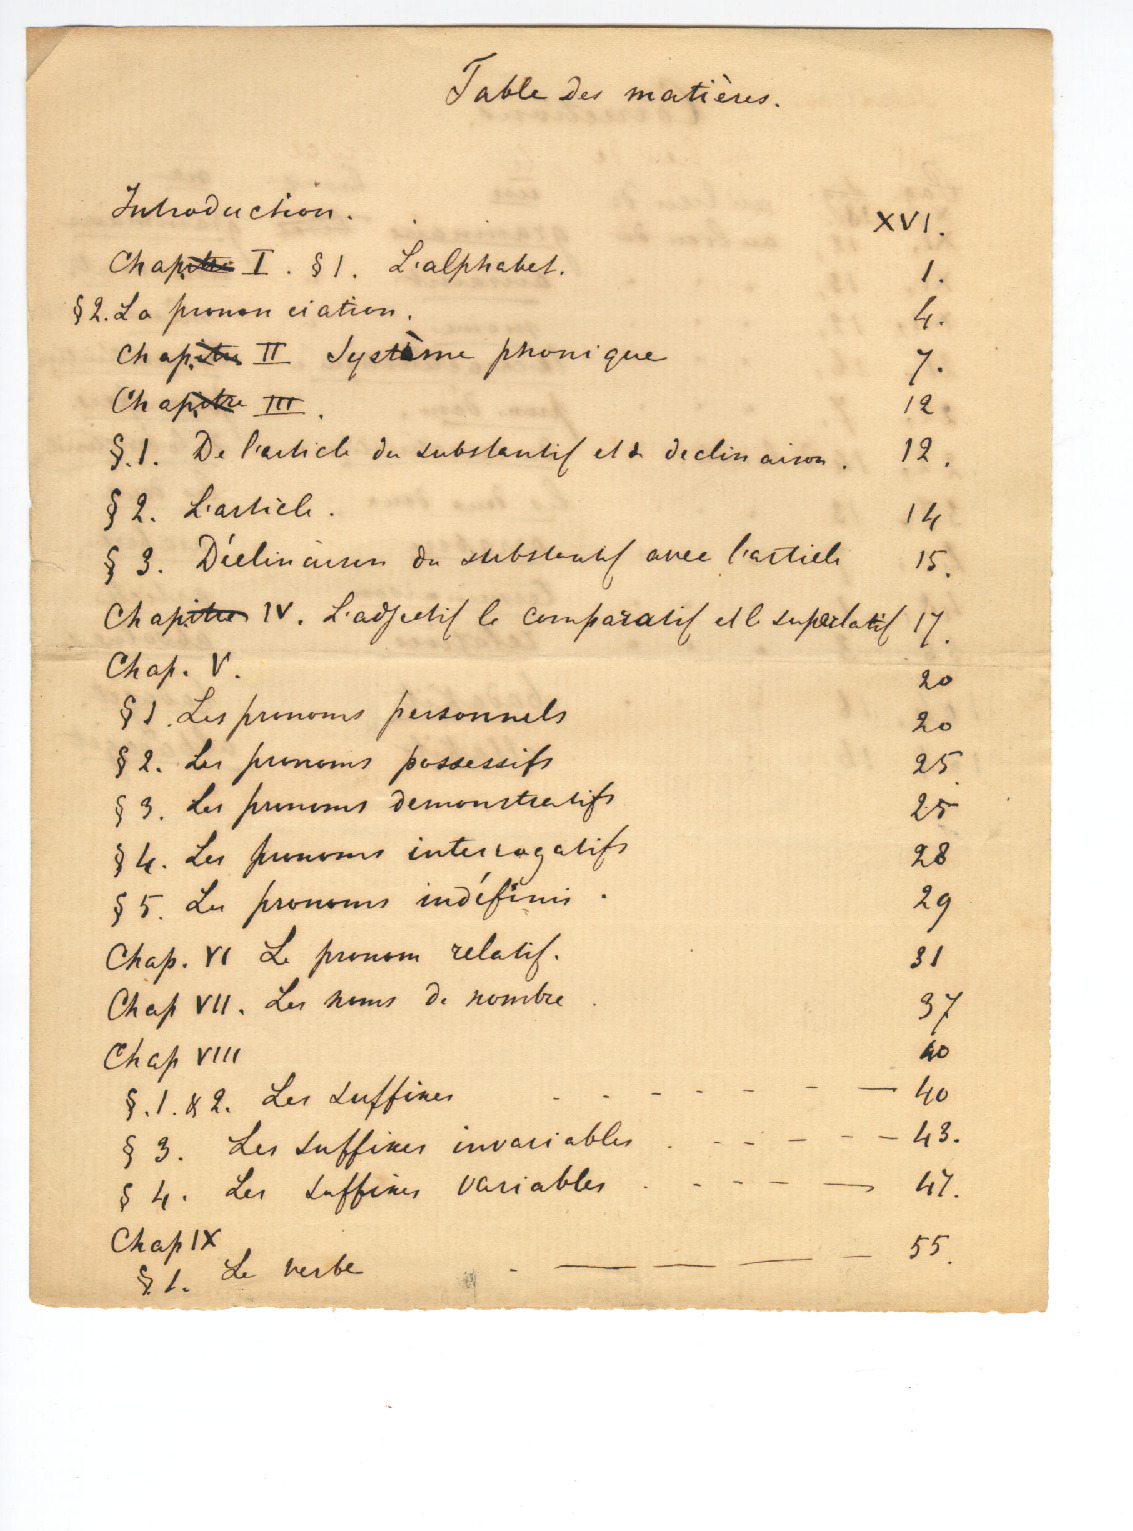 Table des matières.
Introduction. XVI.
Chapitre I. § 1. L'alphabet. 1.
§ 2. La prononciation. 4.
Chapitre II Système phonique 7.
Chapitre III. 12
§. 1. De l'article du substantif et sa declinaison. 12.
§ 2. L'article. 14
§ 3. Déclinaison du substantif avec l'article 15.
Chapitre IV. L'adjectif le comparatif et le superlatif 17.
Chap. V. 20
§ 1. Les pronoms personnels 20
§ 2. Les pronoms possessifs 25
§ 3. Les pronoms demonstratifs 25
§ 4. Les pronoms interrogatifs 28
§ 5. Les pronoms indéfinis. 29
Chap. VI Le pronom relatif. 31
Chap VII. Les noms de nombre. 37
Chap VIII 40
§. 1. & 2. Les suffixes 40
§ 3. Les suffixes invariables 43.
§ 4. Les suffixes variables 47.
Chap IX 55.
§. 1. Le verbe